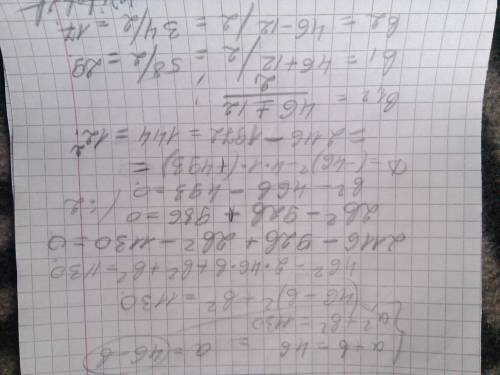 a+b=46 = a=46-b
a²+b²=1130
(46-b)²-b²=1130
46²-2*46*b+b²+b²=1130
2116-92b+2b²-1130=0
2b²-92b+986=0 /:2
b²-46b-493=0
D=(-46)²-4·1·(+493)=
=2116-1972=144=12²
b1,2=46±12/2;
b1=46+12/2=58/2=29
b2=46-12/2=34/2=17